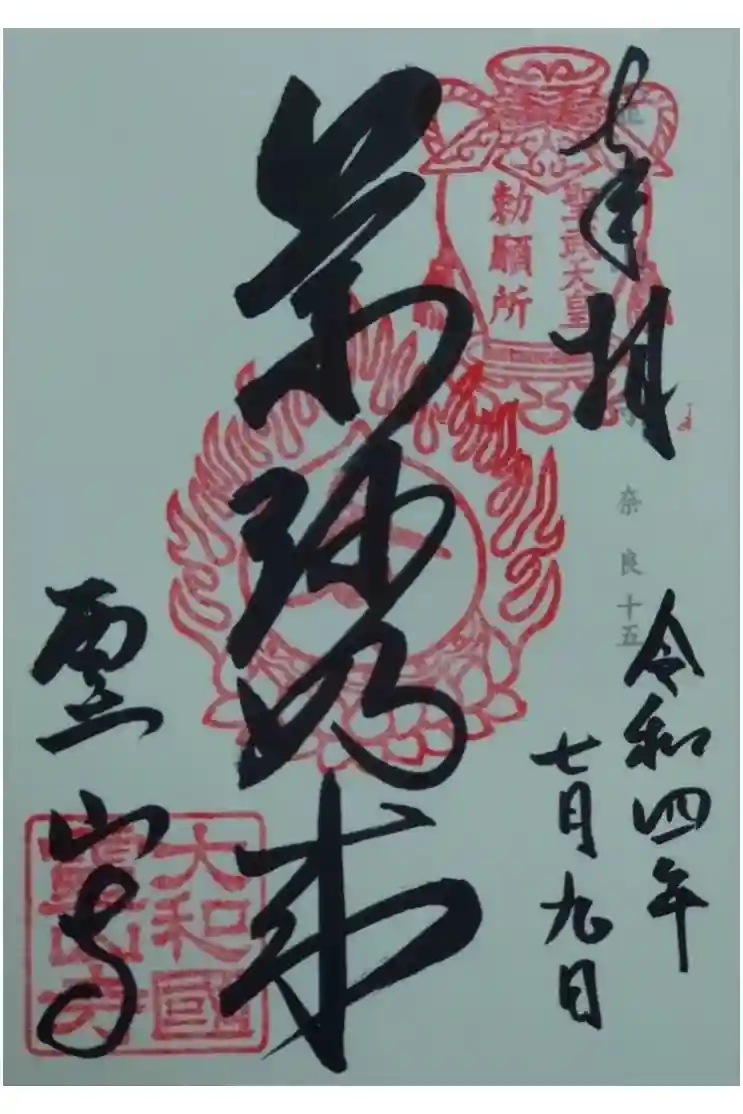 奉拝
聖武天皇
勅願所
奈良十五
令和四年
七月九日
薬師如来
霊山寺
大和國
靈山寺